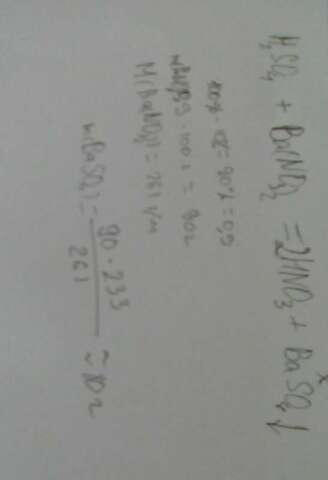 x
H₂SO₄ + Ba(NO₃)₂ = 2HNO₃ + BaSO₄↓
100% - 10% = 90% = 0,9
0,9 · 100 г = 90г
M(Ba(NO₃)₂) = 261 г/м
m(BaSO₄) = 90 · 233 / 261 ≈ 80г